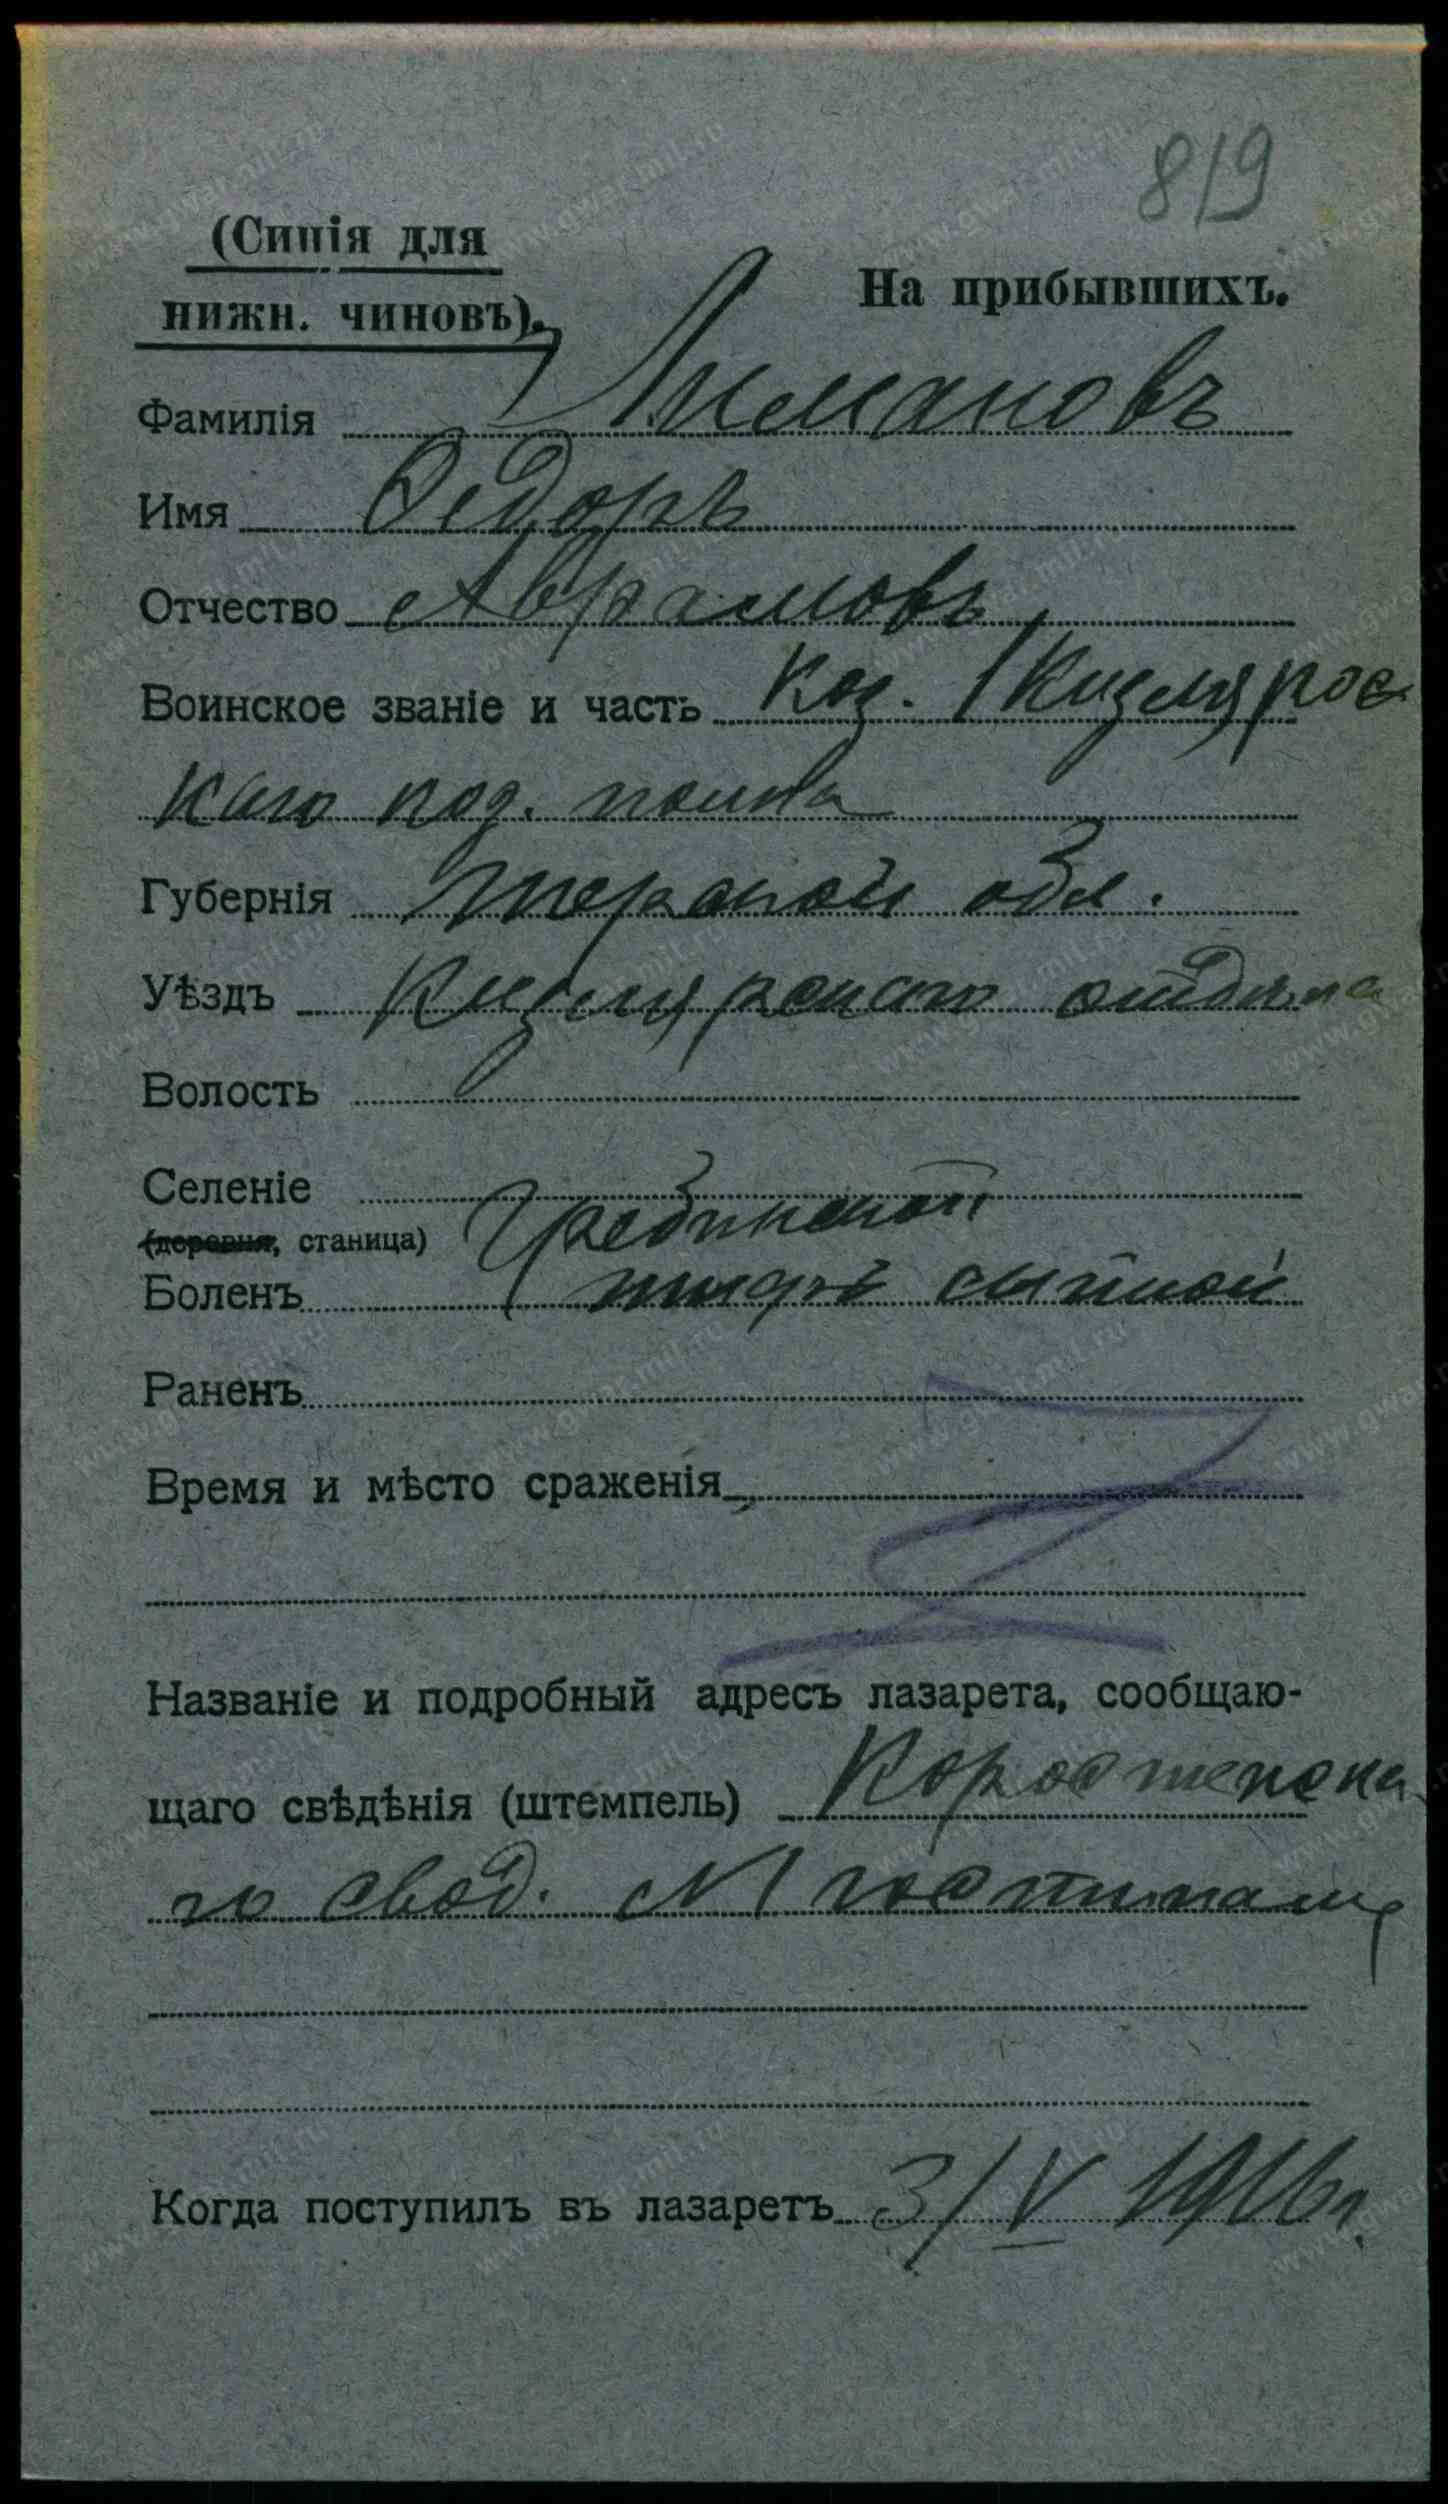 819
(Синія для
нижн. чиновъ).
На прибывшихъ.
Фамилія Лимановъ
Имя Ѳедоръ
Отчество Аврамовъ
Воинское званіе и часть Каз. 1 Кизлярос
каго каз. полка
Губернія Терской обл.
Уѣздъ Кизлярскаго отдѣла
Волость
Селеніе
(деревня, станица) Гребенской
Боленъ тифъ сыпной
Раненъ
Время и мѣсто сраженія
Названіе и подробный адресъ лазарета, сообщаю-
щаго свѣдѣнія (штемпель) Коростенска
го свод. №1 госпиталя
Когда поступилъ въ лазаретъ 3/V 1916 г.